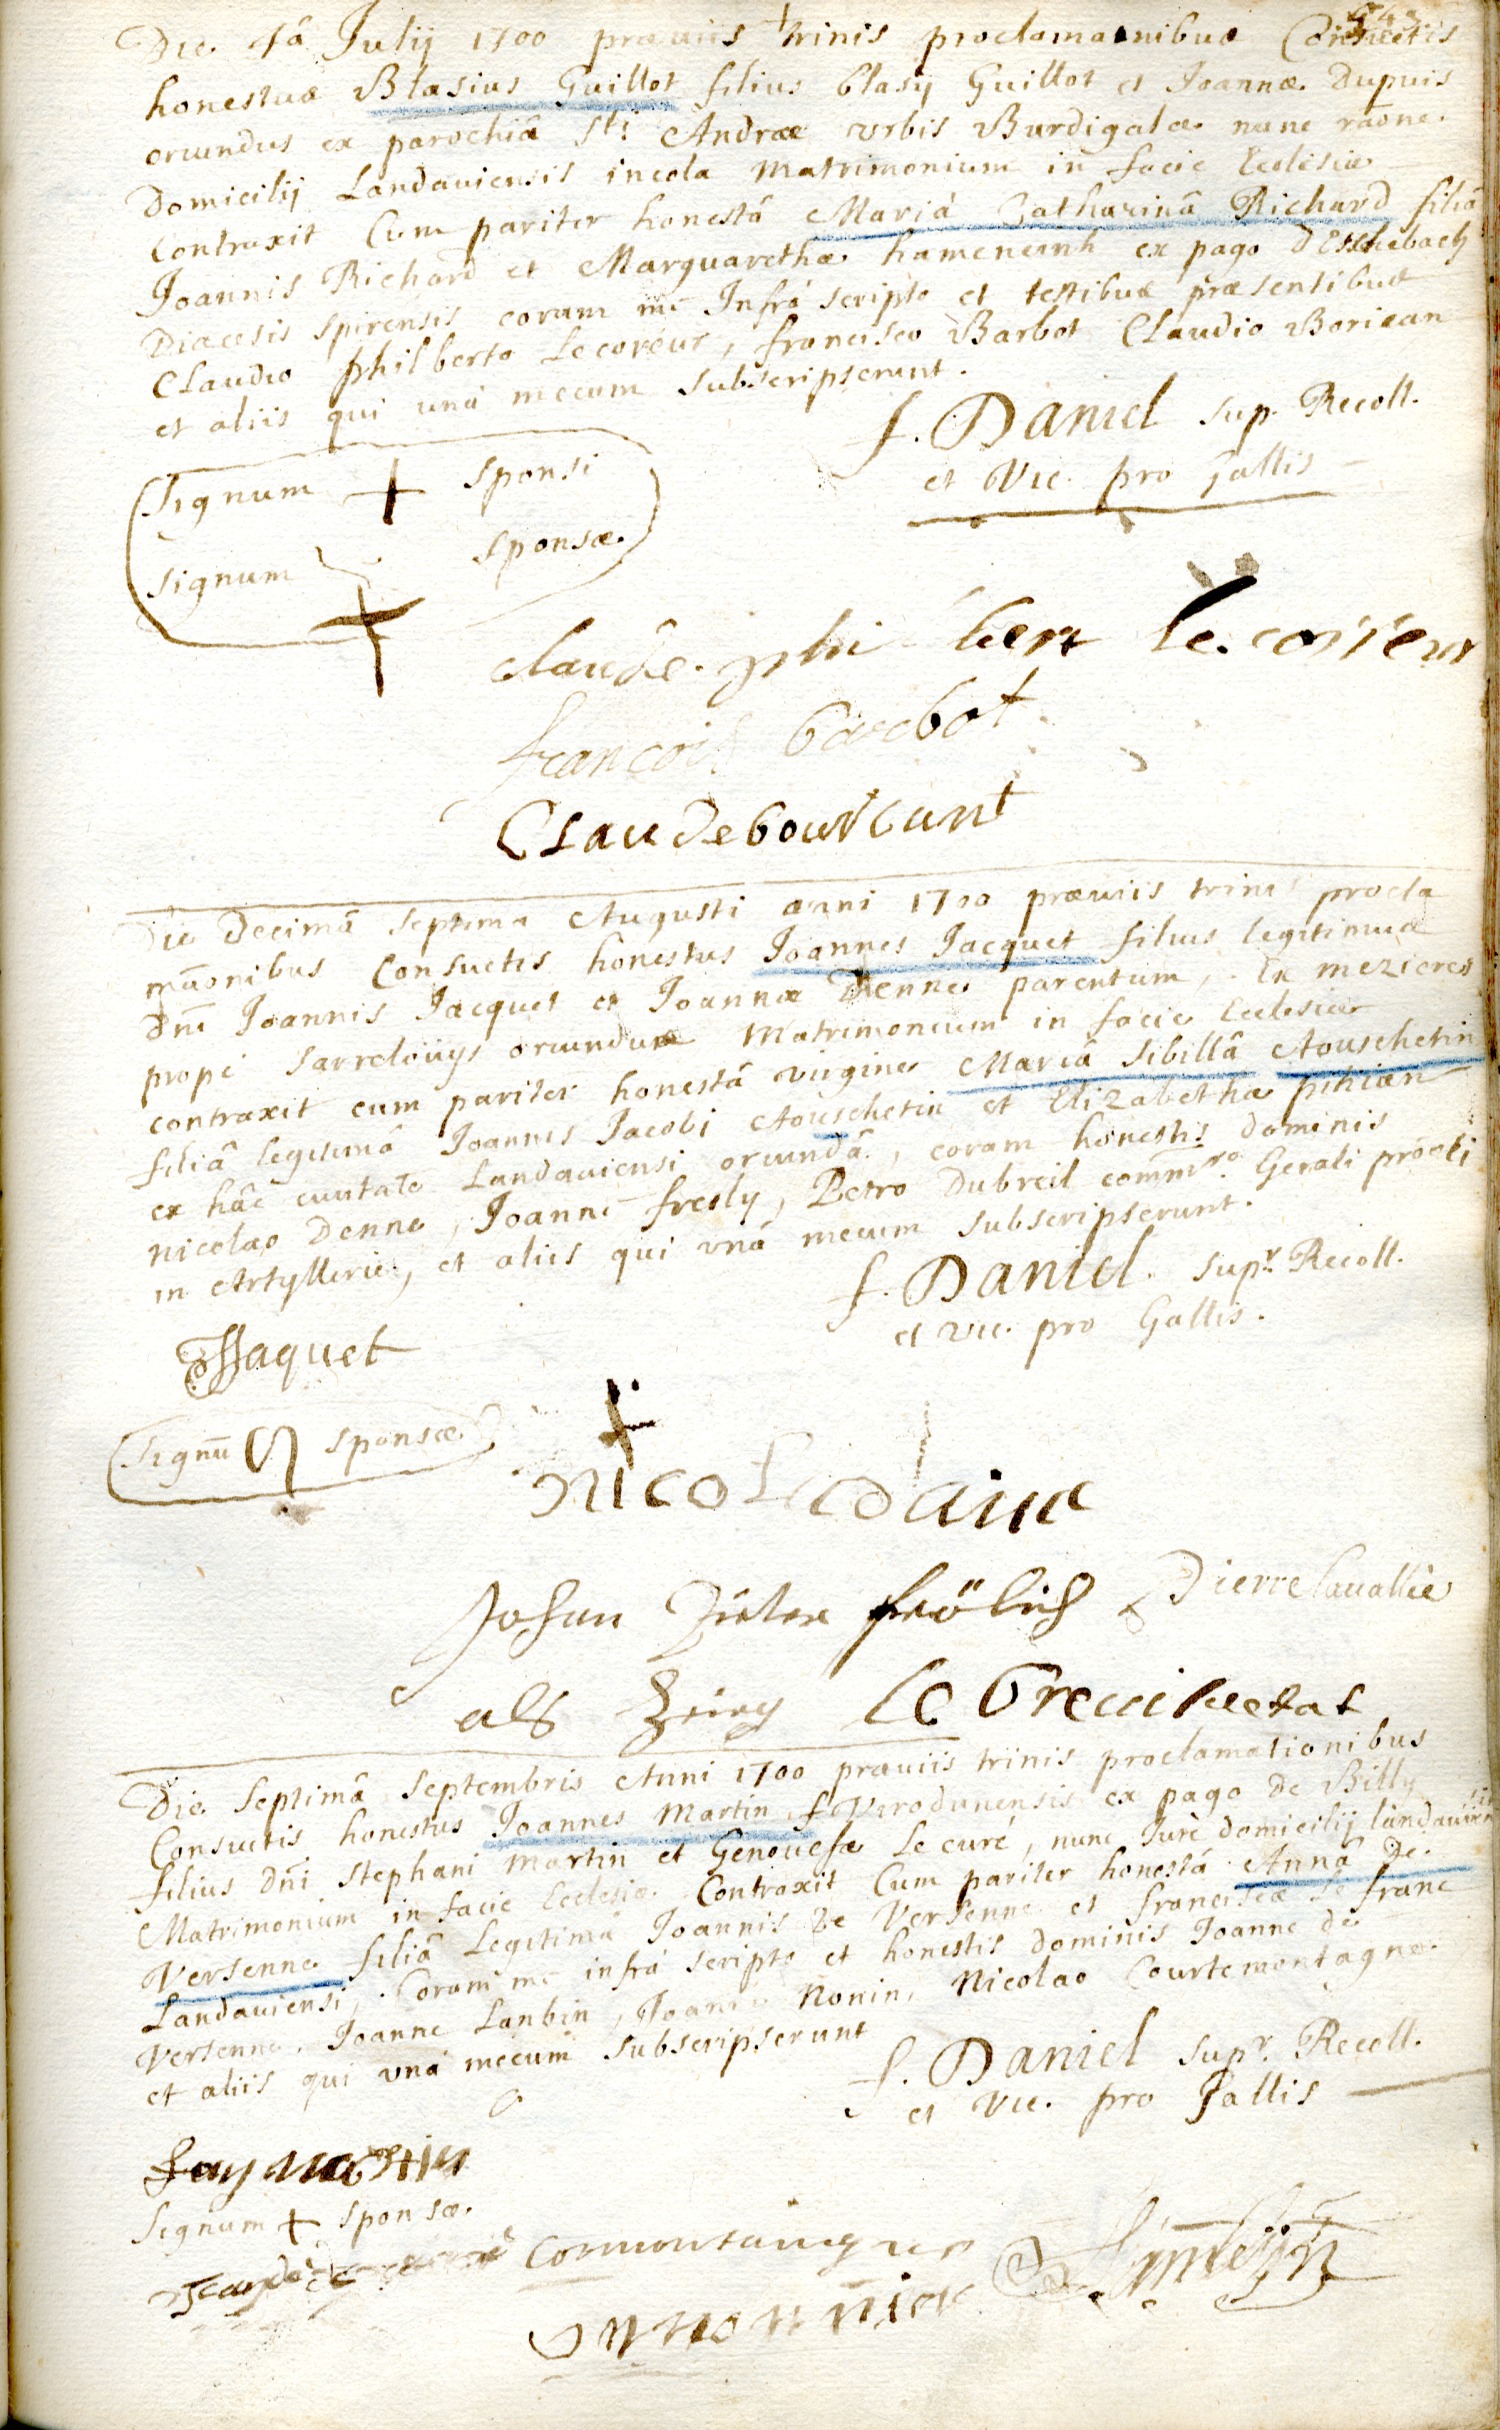 Die 4â Julij 1700 præviis trinis proclamaonibus Consuetis
honestus Blasius Guillot filius blasij Guillot et Joannæ Dupuis
oriundus ex parochiâ Sti Andræ vrbis Burdigalæ nunc raõne
Domicilij Landaviensis incola Matrimonium in facie Ecclesiæ
Contraxit Cum pariter honestâ Mariâ Catharinâ Richard filiâ
Joannis Richard et Marguarethæ ex pago
Diæcesis Spirensis coram me Infrà scripto et testibus præsentibus
Claudio philberto Lecoreur, francisco Barbot Claudio
et aliis qui unà mecum subscripserunt.
f. Daniel sup. Recoll.
et Vic. pro Gallis
Signum + sponsi
Signum + sponsæ.
claude. phi bert le. correur
francois barbot
Claude
Die Decimâ septima Augusti anni 1700 præviis trinis procla
mãonibus Consuetis honestus Joannes Jacquet filius legitimus
Dni Joannis Jacquet et Joannæ Denne parentum, Ex mezieres
propè Sarrelouys oriundus Matrimonium in facie Ecclesiæ
contraxit cum pariter honestâ virgine Mariâ Sibillâ Aouschetin
filiâ legitimâ Joannis Jacobi Aouschetin et Elizabethæ
ex hâc civitate Landaviensi oriundâ, coram honestis dominis
Nicolao Denne, Joanne frely, Petro Dubreil commro. Gerali
in Artyllerie, et aliis qui vnâ mecum subscripserunt.
f. Daniel. supr. Recoll.
et vic. pro Gallis.
Jaquet
Signũ sponsæ
nicola daine
Johan frölich Pierre Lavallée
als Zeüg le
Die Septimâ Septembris Anni 1700 præviis trinis proclamationibus
Consuetis honestus Joannes Martin Virodunensis ex pago De Billy
filius Dni Stephani Martin et Genouefæ Le curé, nunc Jure domicilij landavien
sis
Matrimonium in facie Ecclesiæ Contraxit Cum pariter honestâ Annâ De
Versenne filiâ Legitimâ Joannis De Versenne et franciscæ le franc
Landaviensi, Coram me infrà scripto et honestis Dominis Joanne de
Versenne, Joanne Lanbin, Joanne Nonin, Nicolao Courtemontagne
et aliis qui vnâ mecum subscripserunt
f. Daniel supr. Recoll.
et Vic. pro Gallis
Jan martin
Signum + sponsæ.